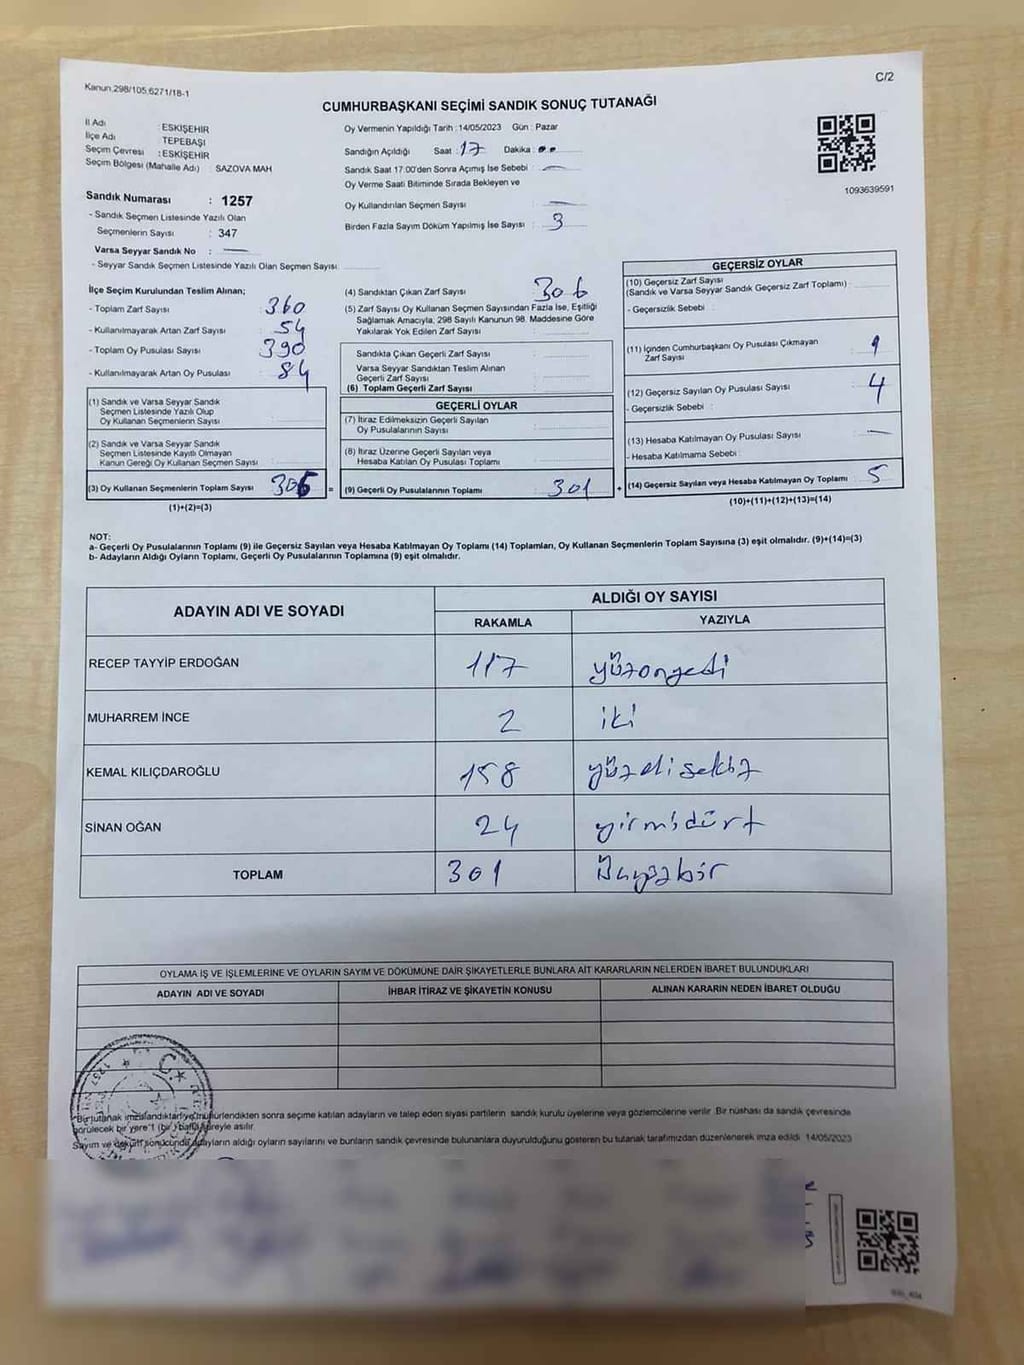 Kanun.298/105,6271/18-1
C/2
CUMHURBAŞKANI SEÇİMİ SANDIK SONUÇ TUTANAĞI
İl Adı : ESKİŞEHİR
İlçe Adı : TEPEBAŞI
Seçim Çevresi : ESKİŞEHİR
Seçim Bölgesi (Mahalle Adı) SAZOVA MAH
Sandık Numarası : 1257
- Sandık Seçmen Listesinde Yazılı Olan
Seçmenlerin Sayısı : 347
Varsa Seyyar Sandık No :
- Seyyar Sandık Seçmen Listesinde Yazılı Olan Seçmen Sayısı:
Oy Vermenin Yapıldığı Tarih : 14/05/2023 Gün : Pazar
Sandığın Açıldığı Saat : 17 Dakika :
Sandık Saat 17:00'den Sonra Açımış İse Sebebi :
Oy Verme Saati Bitiminde Sırada Bekleyen ve
Oy Kullandırılan Seçmen Sayısı :
Birden Fazla Sayım Döküm Yapılmış İse Sayısı : 3
1093639591
İlçe Seçim Kurulundan Teslim Alınan;
- Toplam Zarf Sayısı : 360
- Kullanılmayarak Artan Zarf Sayısı : 54
- Toplam Oy Pusulası Sayısı : 390
- Kullanılmayarak Artan Oy Pusulası : 84
(1) Sandık ve Varsa Seyyar Sandık
Seçmen Listesinde Yazılı Olup
Oy Kullanan Seçmenlerin Sayısı :
(2) Sandık ve Varsa Seyyar Sandık
Seçmen Listesinde Kayıtlı Olmayan
Kanun Gereği Oy Kullanan Seçmen Sayısı :
(3) Oy Kullanan Seçmenlerin Toplam Sayısı 306
(1)+(2)=(3)
(4) Sandıktan Çıkan Zarf Sayısı : 306
(5) Zarf Sayısı Oy Kullanan Seçmen Sayısından Fazla İse, Eşitliği
Sağlamak Amacıyla, 298 Sayılı Kanunun 98. Maddesine Göre
Yakılarak Yok Edilen Zarf Sayısı :
Sandıkta Çıkan Geçerli Zarf Sayısı :
Varsa Seyyar Sandıktan Teslim Alınan
Geçerli Zarf Sayısı :
(6) Toplam Geçerli Zarf Sayısı :
GEÇERLİ OYLAR
(7) İtiraz Edilmeksizin Geçerli Sayılan
Oy Pusulalarının Sayısı :
(8) İtiraz Üzerine Geçerli Sayılan veya
Hesaba Katılan Oy Pusulası Toplamı :
= (9) Geçerli Oy Pusulalarının Toplamı : 301
GEÇERSİZ OYLAR
(10) Geçersiz Zarf Sayısı
(Sandık ve Varsa Seyyar Sandık Geçersiz Zarf Toplamı) :
- Geçersizlik Sebebi :
(11) İçinden Cumhurbaşkanı Oy Pusulası Çıkmayan
Zarf Sayısı : 1
(12) Geçersiz Sayılan Oy Pusulası Sayısı : 4
- Geçersizlik Sebebi :
(13) Hesaba Katılmayan Oy Pusulası Sayısı :
- Hesaba Katılmama Sebebi :
+ (14) Geçersiz Sayılan veya Hesaba Katılmayan Oy Toplamı : 5
(10)+(11)+(12)+(13)=(14)
NOT:
a- Geçerli Oy Pusulalarının Toplamı (9) ile Geçersiz Sayılan veya Hesaba Katılmayan Oy Toplamı (14) Toplamları, Oy Kullanan Seçmenlerin Toplam Sayısına (3) eşit olmalıdır. (9)+(14)=(3)
b- Adayların Aldığı Oyların Toplamı, Geçerli Oy Pusulalarının Toplamına (9) eşit olmalıdır.
ADAYIN ADI VE SOYADI
ALDIĞI OY SAYISI
RAKAMLA YAZIYLA
RECEP TAYYİP ERDOĞAN 117 yüzonyedi
MUHARREM İNCE 2 iki
KEMAL KILIÇDAROĞLU 158 yüzelisekiz
SİNAN OĞAN 24 yirmidört
TOPLAM 301 Üçyüzbir
OYLAMA İŞ VE İŞLEMLERİNE VE OYLARIN SAYIM VE DÖKÜMÜNE DAİR ŞİKAYETLERLE BUNLARA AİT KARARLARIN NELERDEN İBARET BULUNDUKLARI
ADAYIN ADI VE SOYADI İHBAR İTİRAZ VE ŞİKAYETİN KONUSU ALINAN KARARIN NEDEN İBARET OLDUĞU
Bir tutanak imzalandıktan ve mühürlendikten sonra seçime katılan adayların ve talep eden siyasi partilerin sandık kurulu üyelerine veya gözlemcilerine verilir. Bir nüshası da sandık çevresinde
görülecek bir yere 1 (bir) hafta süreyle asılır.
Sayım ve döküm sonucunda adayların aldığı oyların sayılarını ve bunların sandık çevresinde bulunanlara duyurulduğunu gösteren bu tutanak tarafımızdan düzenlenerek imza edildi. 14/05/2023